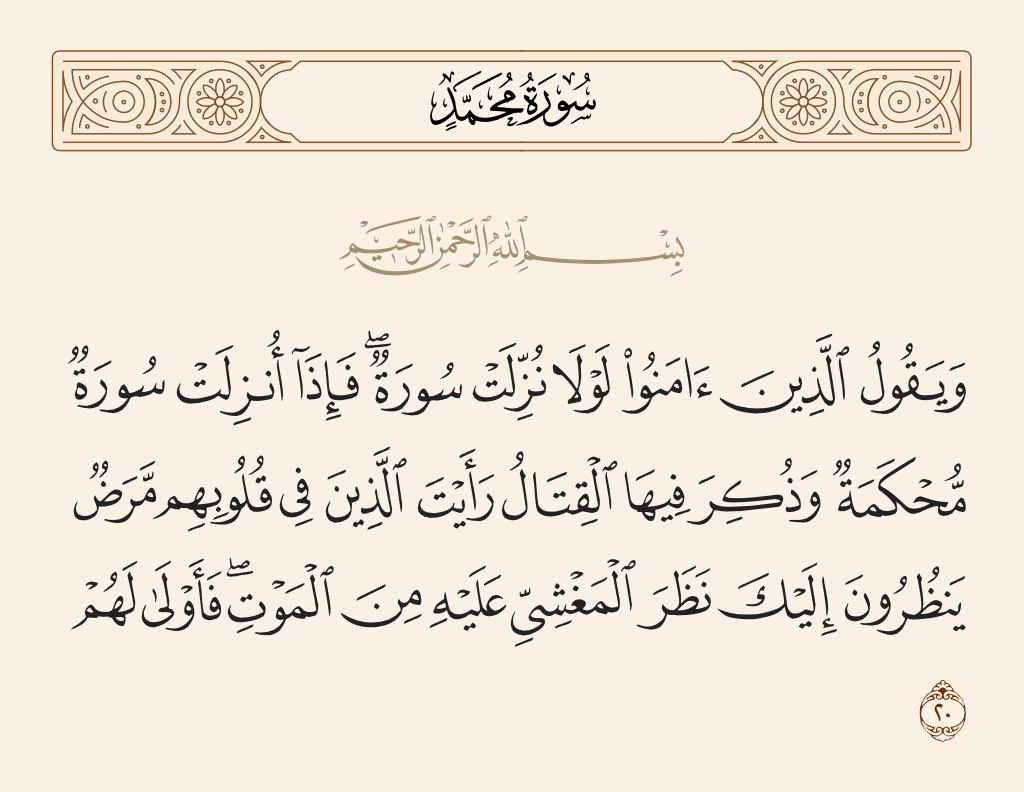 سُورَةُ مُحَمَّدٍ
بِسْمِ ٱللَّهِ ٱلرَّحْمَٰنِ ٱلرَّحِيمِ
وَيَقُولُ ٱلَّذِينَ ءَامَنُوا۟ لَوْلَا نُزِّلَتْ سُورَةٌ ۖ فَإِذَآ أُنزِلَتْ سُورَةٌ
مُّحْكَمَةٌ وَذُكِرَ فِيهَا ٱلْقِتَالُ رَأَيْتَ ٱلَّذِينَ فِى قُلُوبِهِم مَّرَضٌ
يَنظُرُونَ إِلَيْكَ نَظَرَ ٱلْمَغْشِىِّ عَلَيْهِ مِنَ ٱلْمَوْتِ ۖ فَأَوْلَىٰ لَهُمْ
٢٠